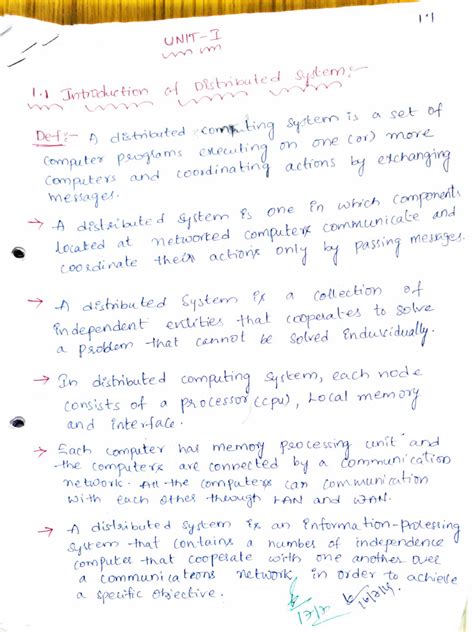 1.1
UNIT-I
1.1 Introduction of Distributed System:-
Def:- A distributed computing system is a set of
computer programs executing on one (or) more
computers and coordinating actions by exchanging
messages.
→ A distributed system is one in which components
located at networked computers communicate and
coordinate their actions only by passing messages.
→ A distributed system is a collection of
independent entities that cooperates to solve
a problem that cannot be solved induvidually.
→ In distributed computing system, each node
consists of a processor (cpu), local memory
and interface.
→ Each computer has memory processing unit and
the computers are connected by a communication
network. All the computers can communication
with each other through LAN and WAN.
→ A distributed system is an information-processing
system that contains a number of independence
computer that cooperate with one another over
a communications network in order to achieve
a specific objective.